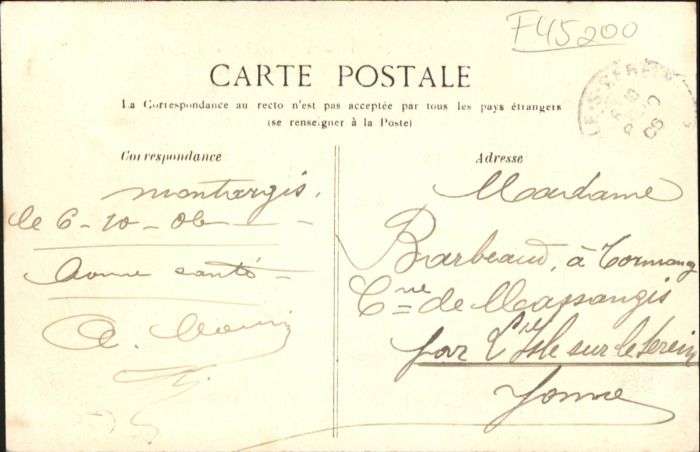 F45200
CARTE POSTALE
La Correspondance au recto n'est pas acceptée par tous les pays étrangers
(se renseigner à la Poste)
Correspondance
montargis.
le 6-10-06
bonne santé
A.
Adresse
Madame
Barbeaud, à Tormancy
Cne de Massangis
par L'Isle sur le Serein
Yonne